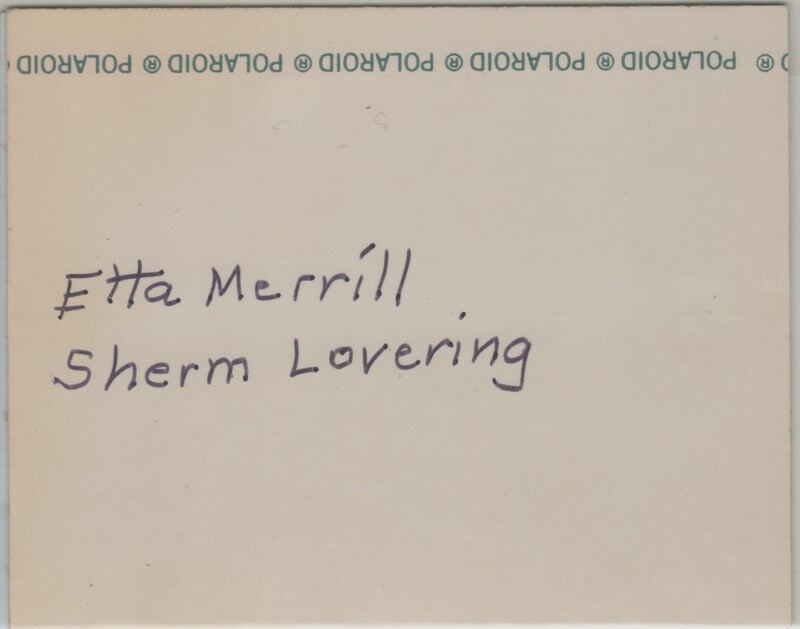 POLAROID ® POLAROID ® POLAROID ® POLAROID ® POLAROID ®
Etta Merrill
Sherm Lovering